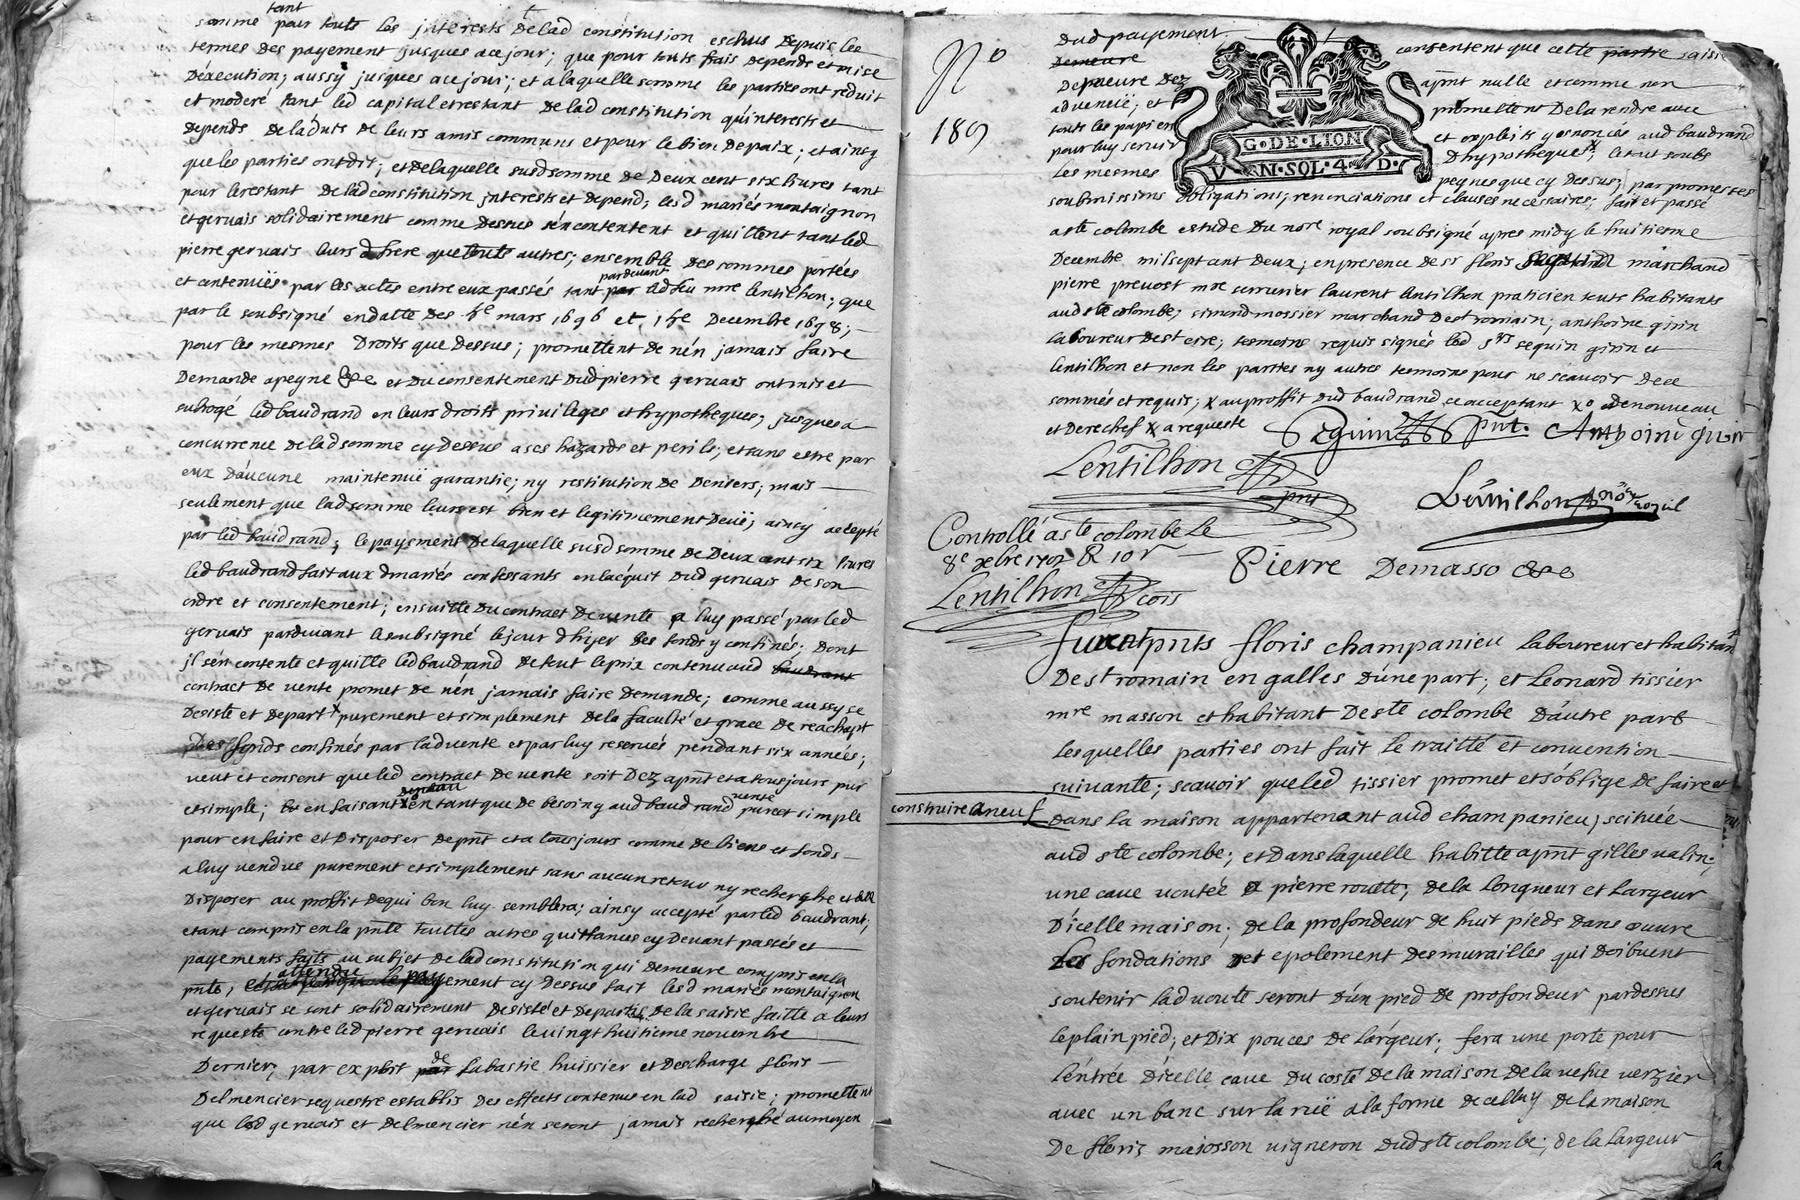 tant
somme pour touts les jnterests de lad constitution eschus depuis les
termes des payement jusques a ce jour; que pour touts frais depends et mise
dexecution; aussy jusques a ce jour; et a laquelle somme les parties ont reduit
et moderé tant led capital et restant de lad constitution qu'interests et
depends de l'aduis de leurs amis communs et pour le bien de paix; et ainsy
que les parties ont dit; et de laquelle susd somme de deux cent six liures tant
pour le restant de lad constitution jnterests et depend; lesd mariés montaignon
et gervais solidairement comme dessus s'en contentent et quittent tant led
pierre gervais leurs d frere que touts autres; ensemble des sommes portées
et contenües par les actes entre eux passés tant par pardeuant led feu mre lentilhon; que
par le soubsigné en datte des mars 1696 et 14e decembre 1698;
pour les mesmes droits que dessus; promettent de n'en jamais faire
demande a peyne &c et du consentement dud pierre gervais ont mis et
subrogé led baudrand en leurs droits privileges et hypotheques; jusques a
concurrence de lad somme cy dessus a ses hazards et perils; et sans estre par
eux d'aucune maintenüe garantie; ny restitution de deniers; mais
seulement que lad somme leurs est bien et legitimement deüe; ainsy accepté
par led baudrand; le payement de laquelle susd somme de deux cent six liures
led baudrand fait aux d mariés confessants en l'acquit dud gervais de son
ordre et consentement; en suitte du contract de vente a luy passé par led
gervais pardeuant le soubsigné le jour d'hijer des fonds y confinés; dont
jl s'en contente et quitte led baudrand de tout le prix contenu aud baudrant
contract de vente promet de n'en jamais faire demande; comme aussy se
desiste et depart x purement et simplement de la faculté et grace de reachapt
des fonds confinés par lad vente et par luy reservés pendant six années;
veut et consent que led contract de vente soit dez apnt et a tousjours pur
et simple; en faisant en tant que de besoing aud baudrand vente pure et simple
pour en faire et disposer de pnt et a tousjours comme de biens et fonds
a luy vendus purement et simplement sans aucun retour ny recherche et d'en
disposer au proffit de qui bon luy semblera; ainsy accepté par led baudrant;
etant compris en la pnte touttes autres quittances cy devant passés et
payements faits au subjet de lad constitution qui demeure compris en la
pnte; attendu le payement cy dessus fait lesd mariés montaignon
et gervais se sont solidairement desisté et departis de la saisie faitte a leurs
requeste contre led pierre gervais le vingt huitieme novembre
dernier; par exploit par de labastie huissier et descharge floris
delmencier sequestre establis des effets contenus en lad saisie; promettent
que lesd gervais et delmencier n'en seront jamais recherché au moyen
No
189
dud payement consentent que cette partie saisie
demeure
depneure dez apnt nulle et comme non
advenüe; et promettent de la rendre avec
touts les papiers et exploits y enoncés aud baudrand
pour luy servir d'hypotheque; le tout soubs
les mesmes peynes que cy dessus; par promesses
soubmissions obligations; renonciations et clauses necessaires; fait et passé
G·DE·LION
V N·SOL·4·D·
a ste colombe estude du nore royal soubsigné apres midy le huitieme
decembre mil sept cent deux; en presence de sr floris seguin marchand
pierre prevost mre serrurier laurent lentilhon praticien touts habitants
aud ste colombe; simond mossier marchand de st romain; anthoine girin
laboureur de st cire; tesmoins requis signés led srs seguin girin et
lentilhon et non les parties ny autres tesmoins pour ne scavoir de ce
sommés et requis; x au proffit dud baudrand ce acceptant xo de nouveau
et derechef x a requeste Seguin pnt. Anthoine girin
Lentilhon pnt
Lentilhon nore royal
Controllé a ste colombe le
8e xbre 1702 R 10s
Lentilhon cois
Pierre Demasso &c
furent pnts floris champanieu laboureur et habitant
de st romain en galles d'une part; et Leonard tissier
mre masson et habitant de ste colombe d'autre part
lesquelles parties ont fait le traitté et convention
suivante; scavoir que led tissier promet et s'oblige de faire et
construire a neuf
dans la maison appartenant aud champanieu, scituée
aud ste colombe; et dans laquelle habitte apnt gilles valin;
une cave voutée a pierre routte; de la longueur et largeur
d'icelle maison; de la profondeur de huit pieds dans œuvre
Les fondations et epolement des murailles qui doibuent
soutenir lad voute seront d'un pied de profondeur par dessus
le plain pied; et dix pouces de largeur; fera une porte pour
l'entrée d'icelle cave du costé de la maison de la vefue verzier
avec un banc sur la rüe a la forme de celluy de la maison
de floris majosson vigneron dud ste colombe; de la largeur
la